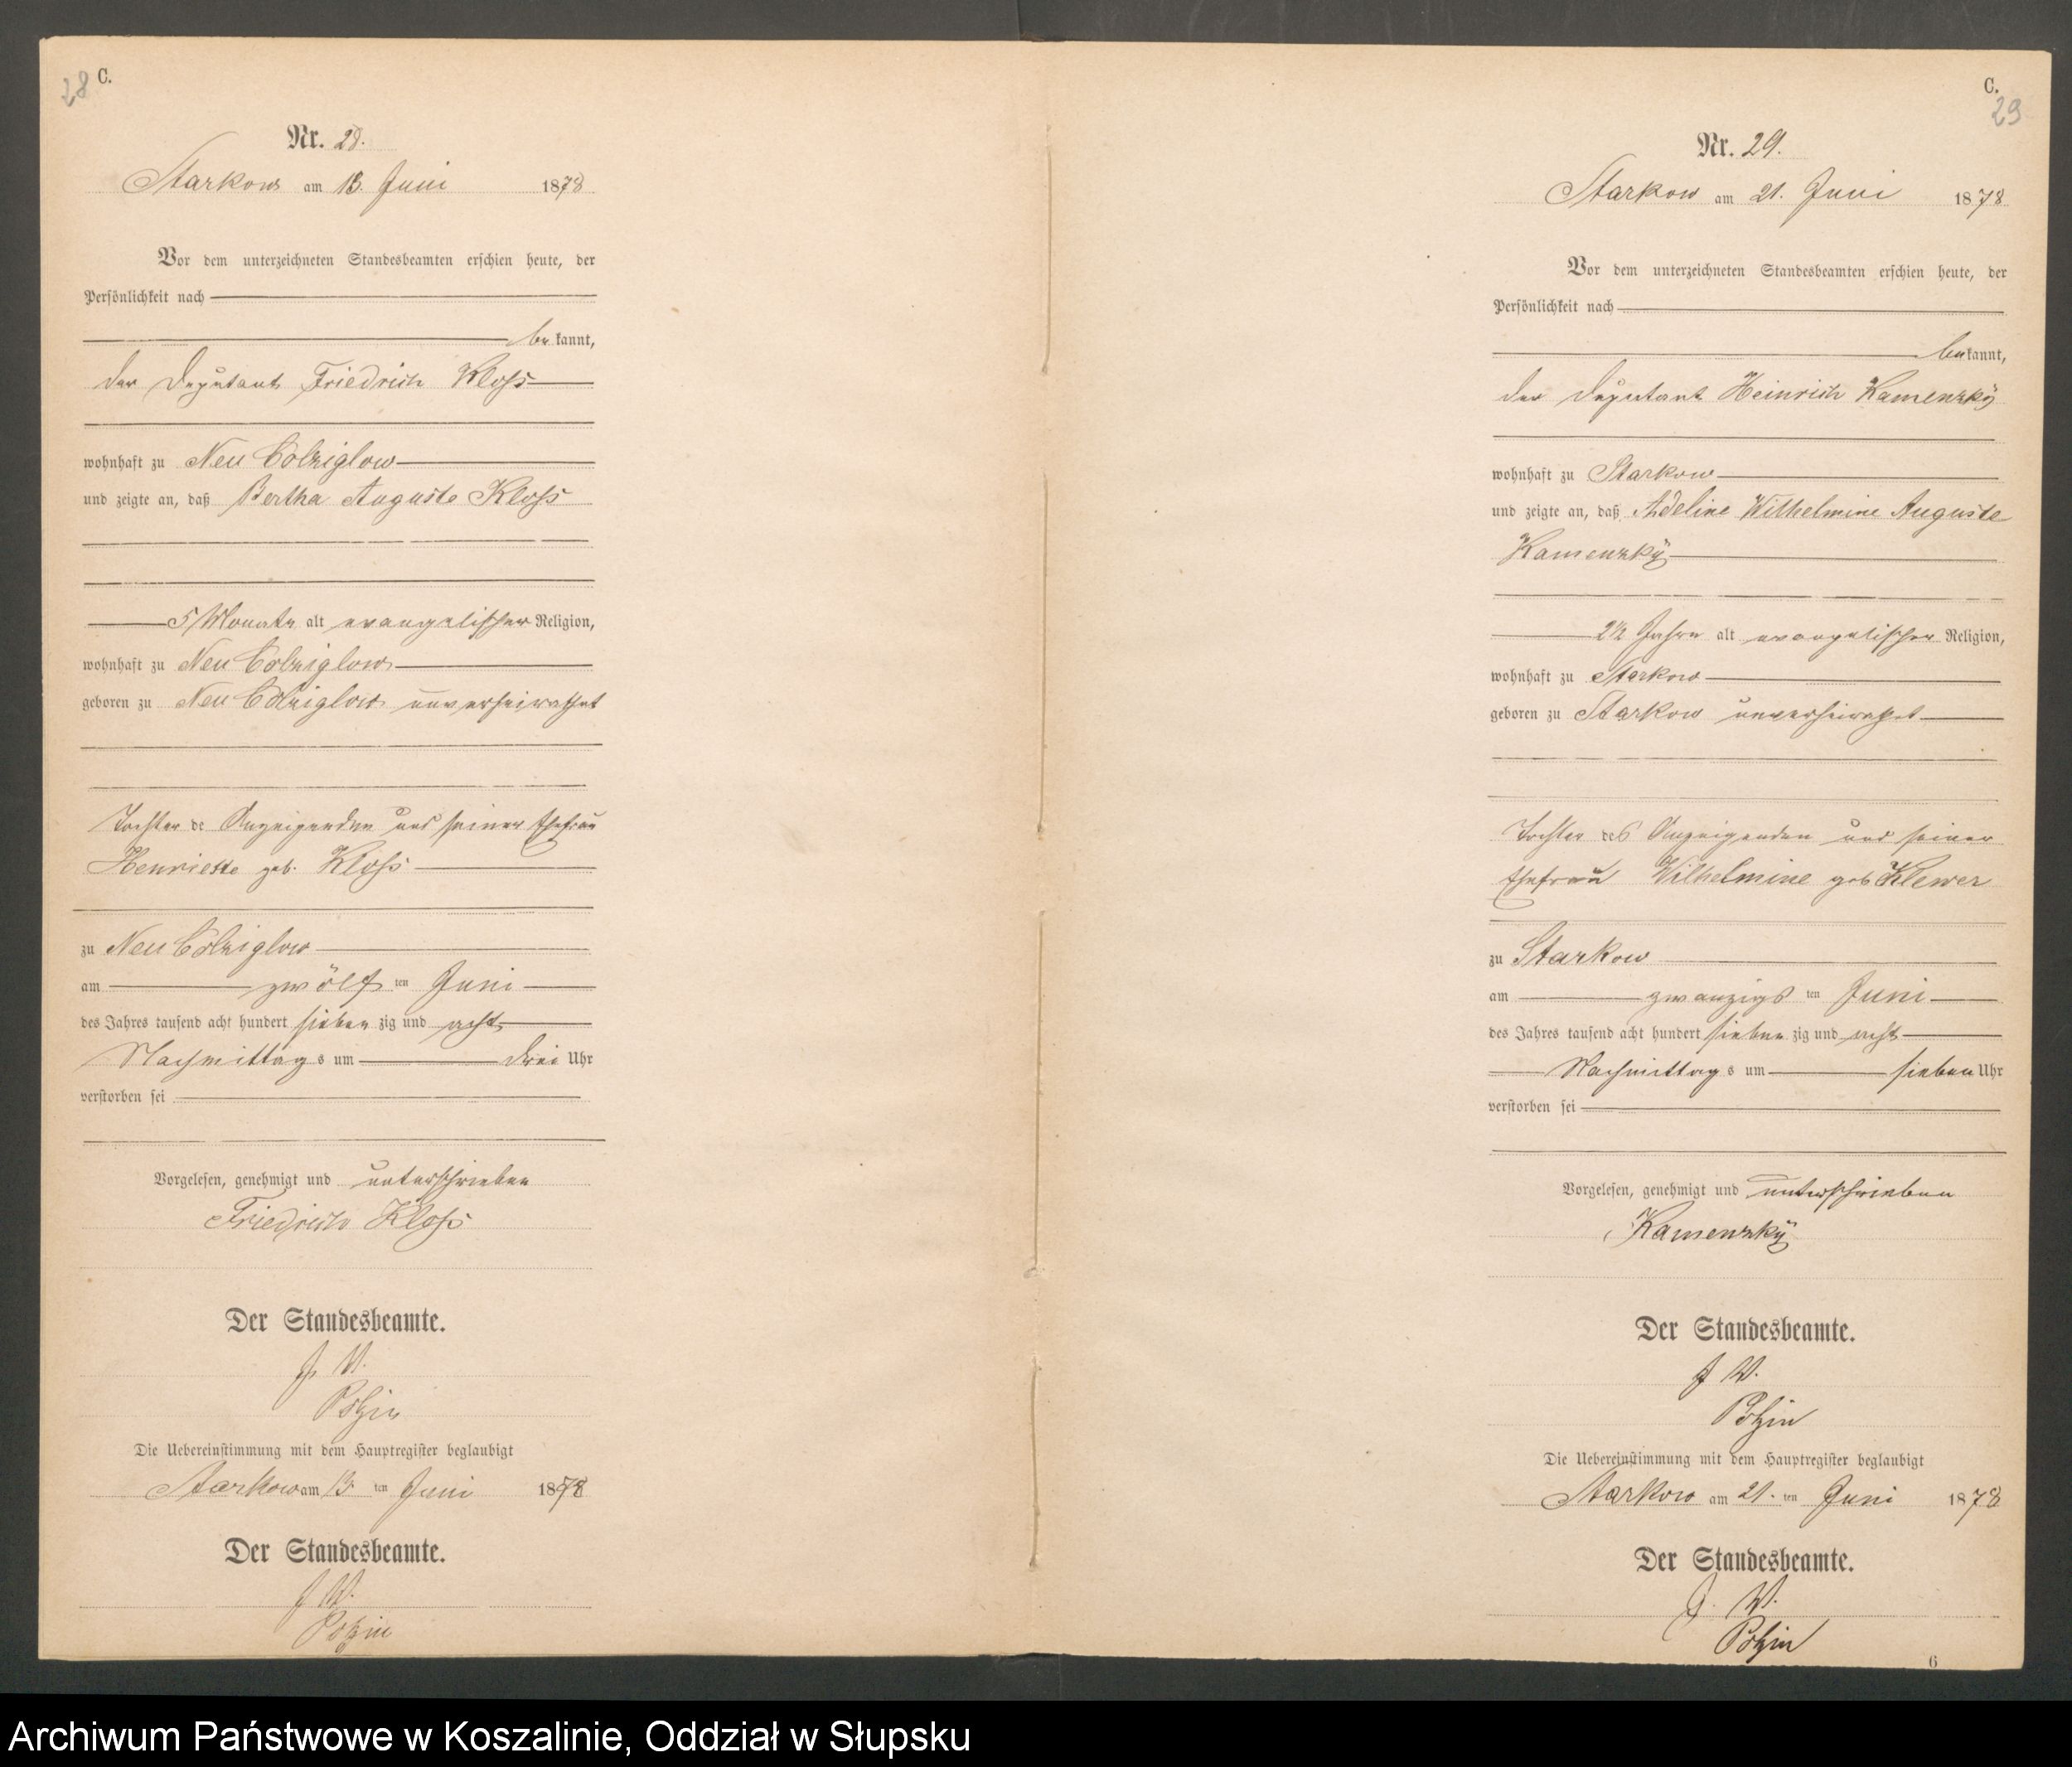 28 C.
Nr. 28.
Starkow am 13. Juni 1878
Vor dem unterzeichneten Standesbeamten erschien heute, der
Persönlichkeit nach
be kannt,
der Deputant Friedrich Kloss
wohnhaft zu Neu Colziglow
und zeigte an, daß Bertha Auguste Kloss
5 Monate alt evangelischer Religion,
wohnhaft zu Neu Colziglow
geboren zu Neu Colziglow unverheirathet
Tochter de Anzeigenden und seiner Ehefrau
Henriette geb. Kloss
zu Neu Colziglow
am zwölf ten Juni
des Jahres tausend acht hundert sieben zig und acht
Nachmittags um drei Uhr
verstorben sei
Vorgelesen, genehmigt und unterschrieben
Friedrich Kloss
Der Standesbeamte.
J. V.
Die Uebereinstimmung mit dem Hauptregister beglaubigt
Starkow am 13 ten Juni 1878
Der Standesbeamte.
J. V.
C.
29
Nr. 29.
Starkow am 21. Juni 1878
Vor dem unterzeichneten Standesbeamten erschien heute, der
Persönlichkeit nach
be kannt,
der Deputant Heinrich Kamenzky
wohnhaft zu Starkow
und zeigte an, daß Adeline Wilhelmine Auguste
Kamenzky
2½ Jahre alt evangelischer Religion,
wohnhaft zu Starkow
geboren zu Starkow unverheirathet
Tochter des Anzeigenden und seiner
Ehefrau Wilhelmine geb Klewer
zu Starkow
am zwanzigs ten Juni
des Jahres tausend acht hundert sieben zig und acht
Nachmittags um sieben Uhr
verstorben sei
Vorgelesen, genehmigt und unterschrieben
Kamenzky
Der Standesbeamte.
J V.
Die Uebereinstimmung mit dem Hauptregister beglaubigt
Starkow am 21. ten Juni 1878
Der Standesbeamte.
J. V.
6
Archiwum Państwowe w Koszalinie, Oddział w Słupsku